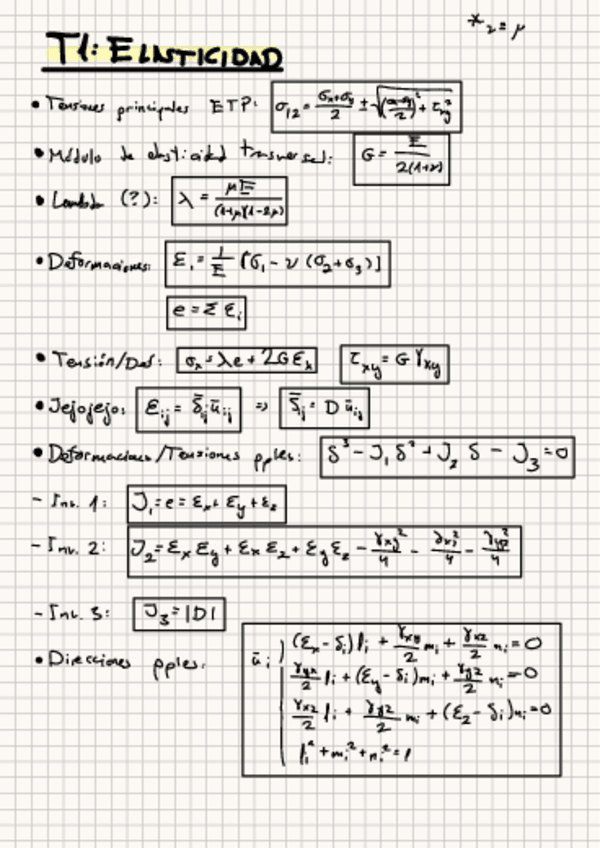 *ν = μ
T1: ELASTICIDAD
• Tensiones principales ETP: σ₁₂ = (σx+σy)/2 ± √(((σx-σy)/2)² + τxy²)
• Módulo de elasticidad transversal: G = E/(2(1+ν))
• Lambda (?): λ = μE/((1+μ)(1-2μ))
• Deformaciones: ε₁ = 1/E [σ₁ - ν (σ₂+σ₃)]
e = Σ εᵢ
• Tensión/Def: σx = λe + 2Gεx τxy = G γxy
• Jejojejo: εij = δ̄ij ūij => δ̄ij = D ūij
• Deformaciones/Tensiones pples: δ³ - J₁ δ² + J₂ δ - J₃ = 0
- Inv. 1: J₁ = e = εx + εy + εz
- Inv. 2: J₂ = εx εy + εx εz + εy εz - γxy²/4 - γxz²/4 - γyz²/4
- Inv. 3: J₃ = |D|
• Direcciones pples: ūi } (εx - δi) li + γxy/2 mi + γxz/2 ni = 0
γyx/2 li + (εy - δi) mi + γyz/2 ni = 0
γxz/2 li + γyz/2 mi + (εz - δi) ni = 0
li² + mi² + ni² = 1